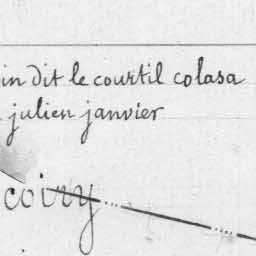 in dit le courtil colasa
julien janvier
coiry